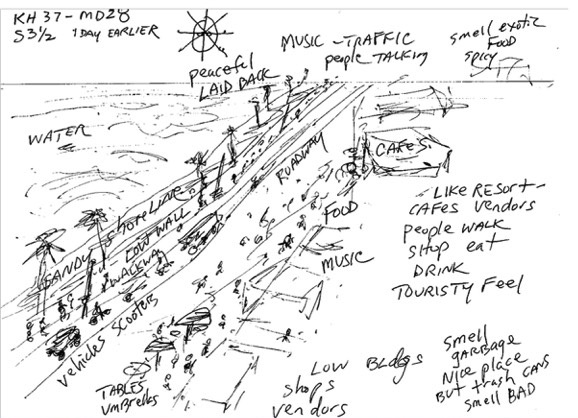 KH 37 - MD28
S3½ 1 DAY EARLIER
MUSIC - TRAFFIC
people TALKING
smell exotic
FOOD
spicy
peaceful
LAID BACK
WATER
ROADWAY
CAFES
SHORELINE
LOW WALL
SANDY
WALKWAY
FOOD
MUSIC
LIKE RESORT -
CAFES vendors
people WALK
shop eat
DRINK
TOURISTY Feel
vehicles scooters
TABLES
UMBRELLAS
LOW BLDGS
shops
vendors
smell
GARBAGE
NICE place
BUT trash CANS
smell BAD